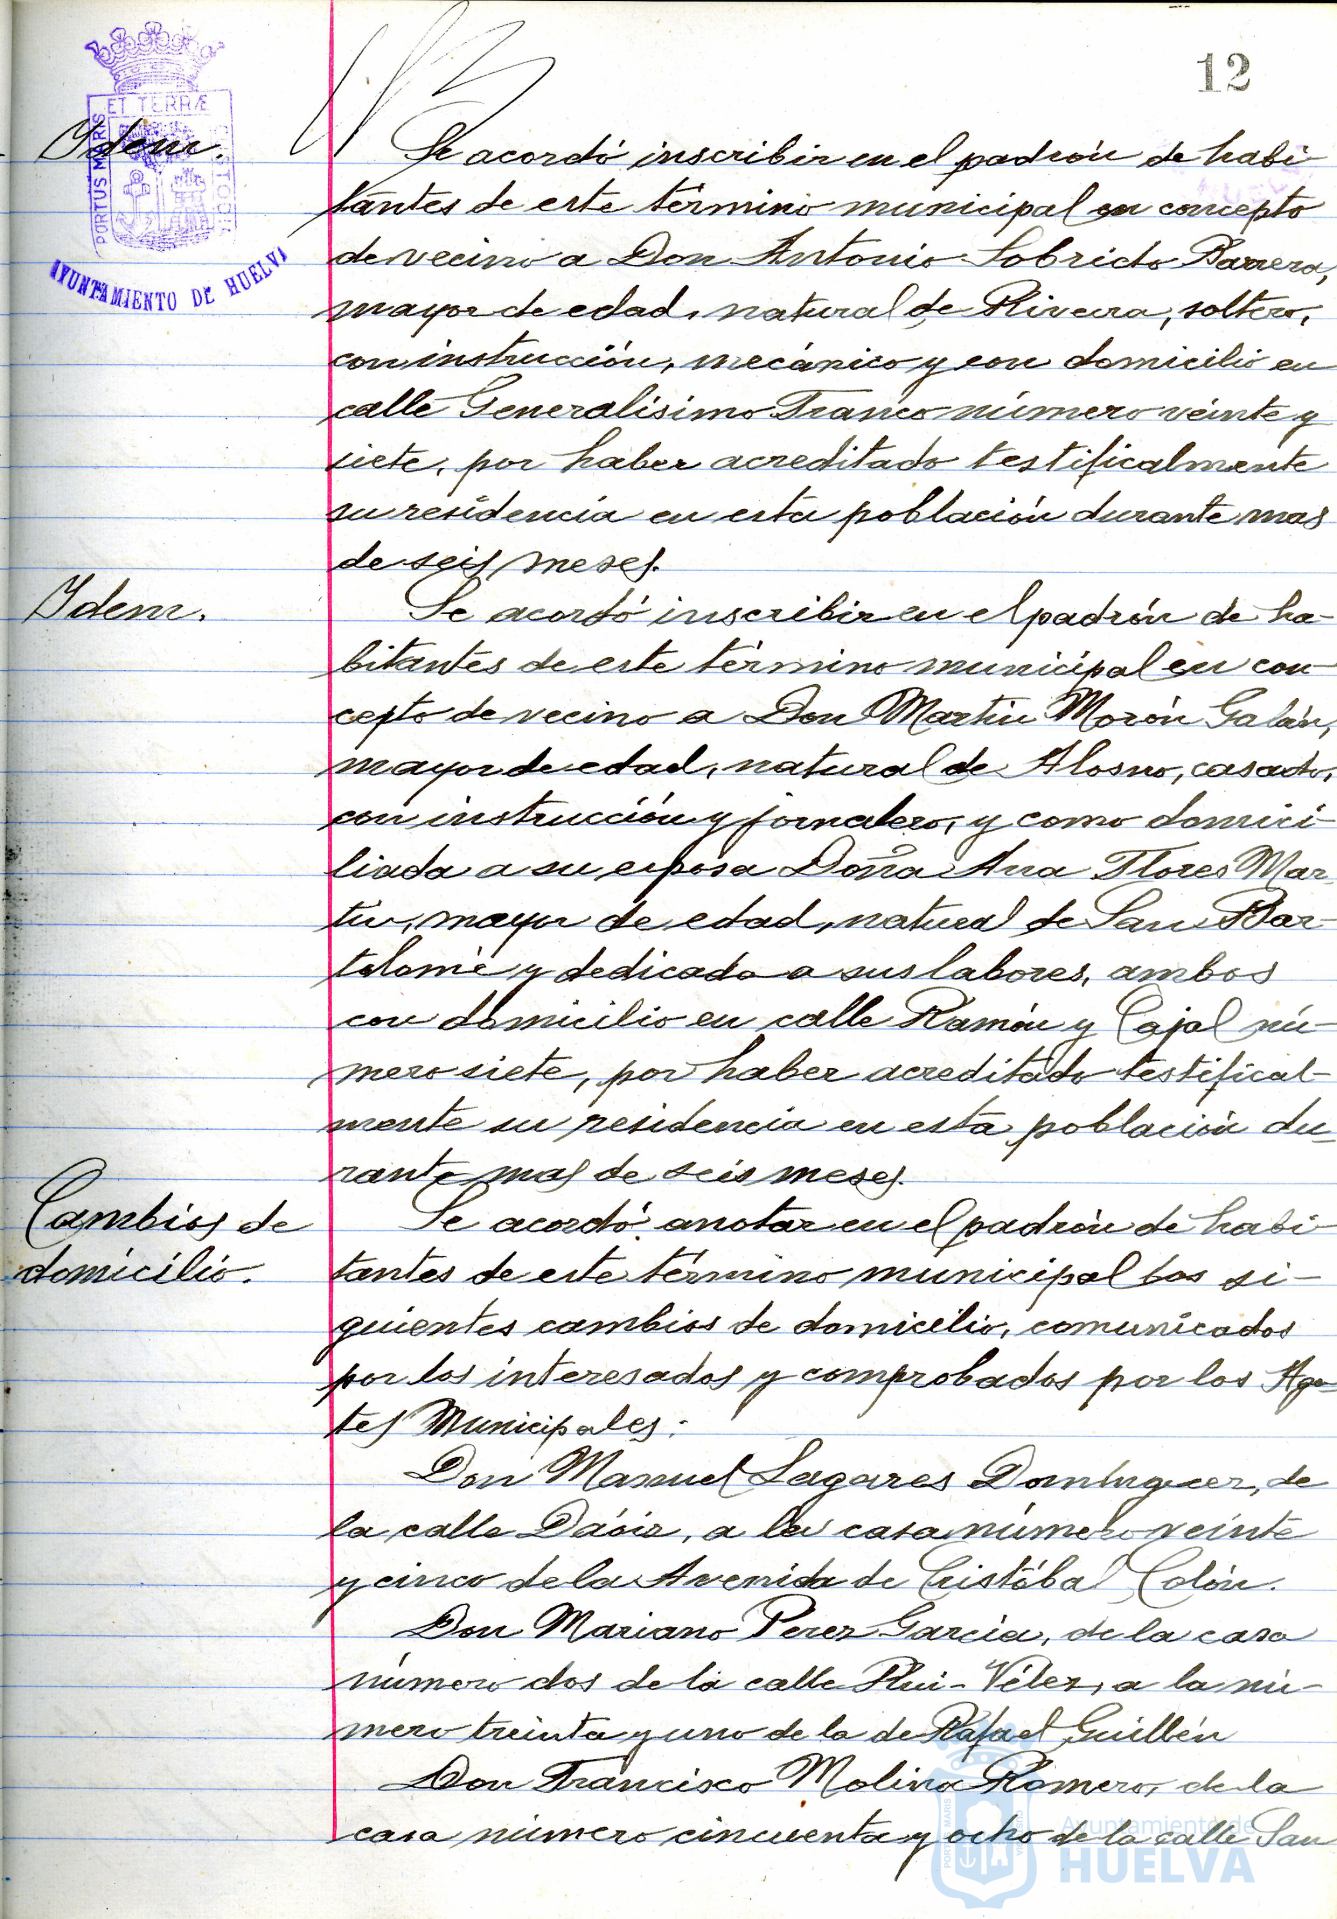 12
PORTUS MARIS ET TERRÆ CUSTODIA
AYUNTAMIENTO DE HUELVA
Idem.
Se acordó inscribir en el padrón de habi-
tantes de este término municipal en concepto
de vecino a Don Antonio Sobrido Barrera,
mayor de edad, natural de Rivera, soltero,
con instrucción, mecánico y con domicilio en
calle Generalísimo Franco número veinte y
siete, por haber acreditado testificalmente
su residencia en esta población durante mas
de seis meses.
Idem.
Se acordó inscribir en el padrón de ha-
bitantes de este término municipal en con-
cepto de vecino a Don Martin Morón Galán,
mayor de edad, natural de Alosno, casado,
con instrucción y jornalero, y como domici-
liada a su esposa Doña Ana Flores Mar-
tin, mayor de edad, natural de San Bar-
tolomé y dedicada a sus labores, ambos
con domicilio en calle Ramón y Cajal nú-
mero siete, por haber acreditado testifical-
mente su residencia en esta población du-
rante mas de seis meses.
Cambios de
domicilio.
Se acordó anotar en el padrón de habi-
tantes de este término municipal los si-
guientes cambios de domicilio, comunicados
por los interesados y comprobados por los Agen-
tes Municipales:
Don Manuel Lagares Domínguez, de
la calle Dáoiz, a la casa número veinte
y cinco de la Avenida de Cristóbal Colón.
Don Mariano Perez García, de la casa
número dos de la calle Rui-Vélez, a la nú-
mero treinta y uno de la de Rafael Guillén
Don Francisco Molina Romero, de la
casa número cincuenta y ocho de la calle San
Ayuntamiento de
HUELVA